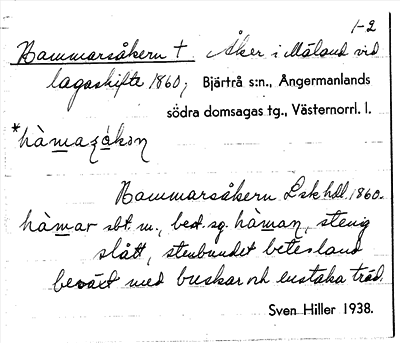 1-2
Hammarsåkern † Åker i Mäland vid
lagaskifte 1860, Bjärtrå s:n., Ångermanlands
södra domsagas tg., Västernorrl. l.
*hàmaʒåkən
Hammarsåkern Lskhdl. 1860.
hàmar sbt. m., best. sg. hàman, stenig
slått, stenbundet betesland
beväxt med buskar och enstaka träd.
Sven Hiller 1938.